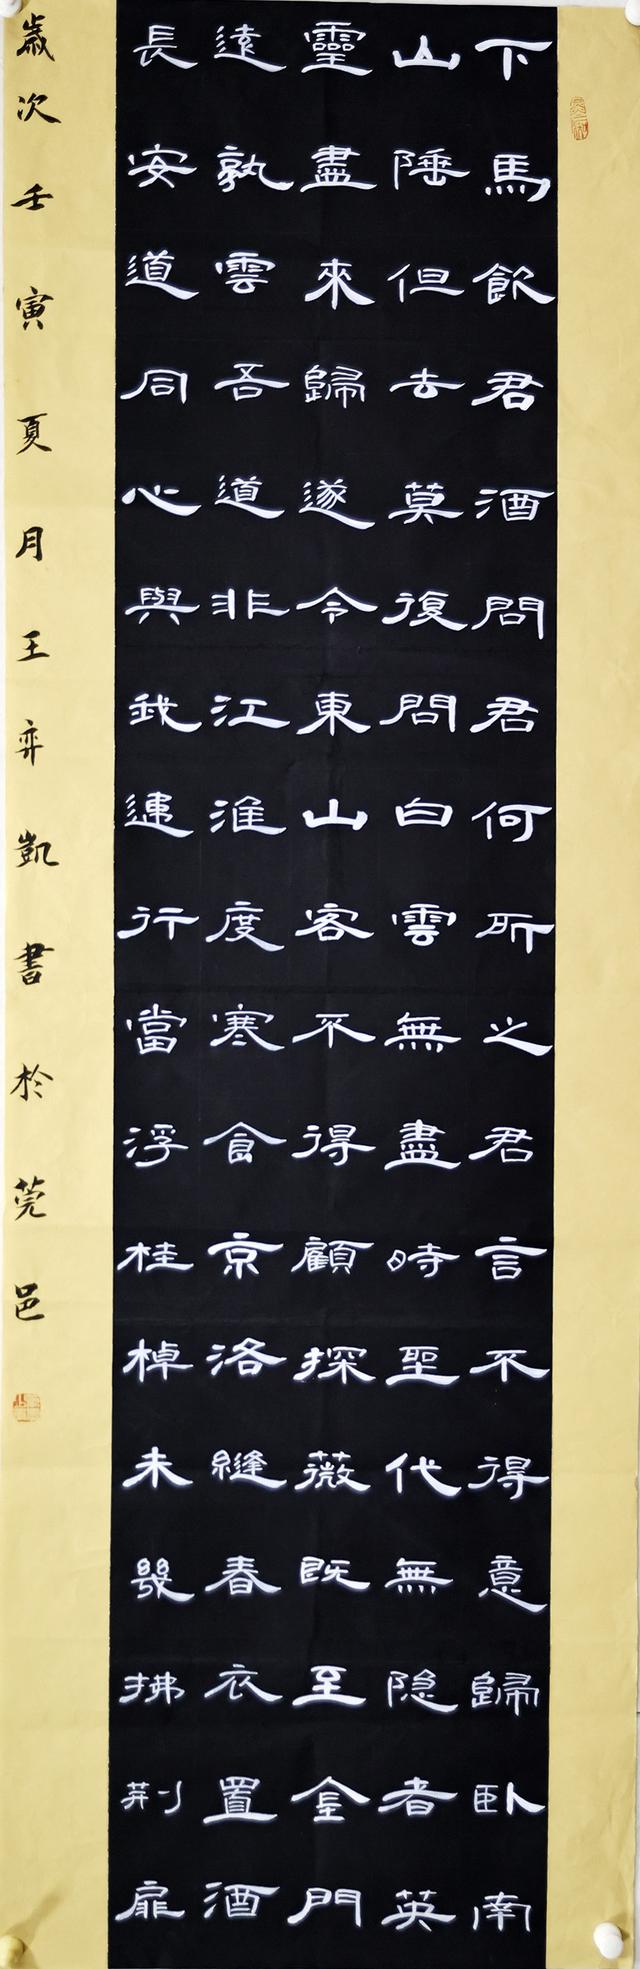 下馬飲君酒問君何所之君言不得意歸臥南
山陲但去莫復問白雲無盡時聖代無隐者英
靈盡來歸遂令東山客不得顧探薇既至金門
遠孰雲吾道非江淮度寒食京洛縫春衣置酒
長安道同心與我違行當浮桂棹未幾拂荆扉
歲次壬寅夏月王弈凱書於莞邑